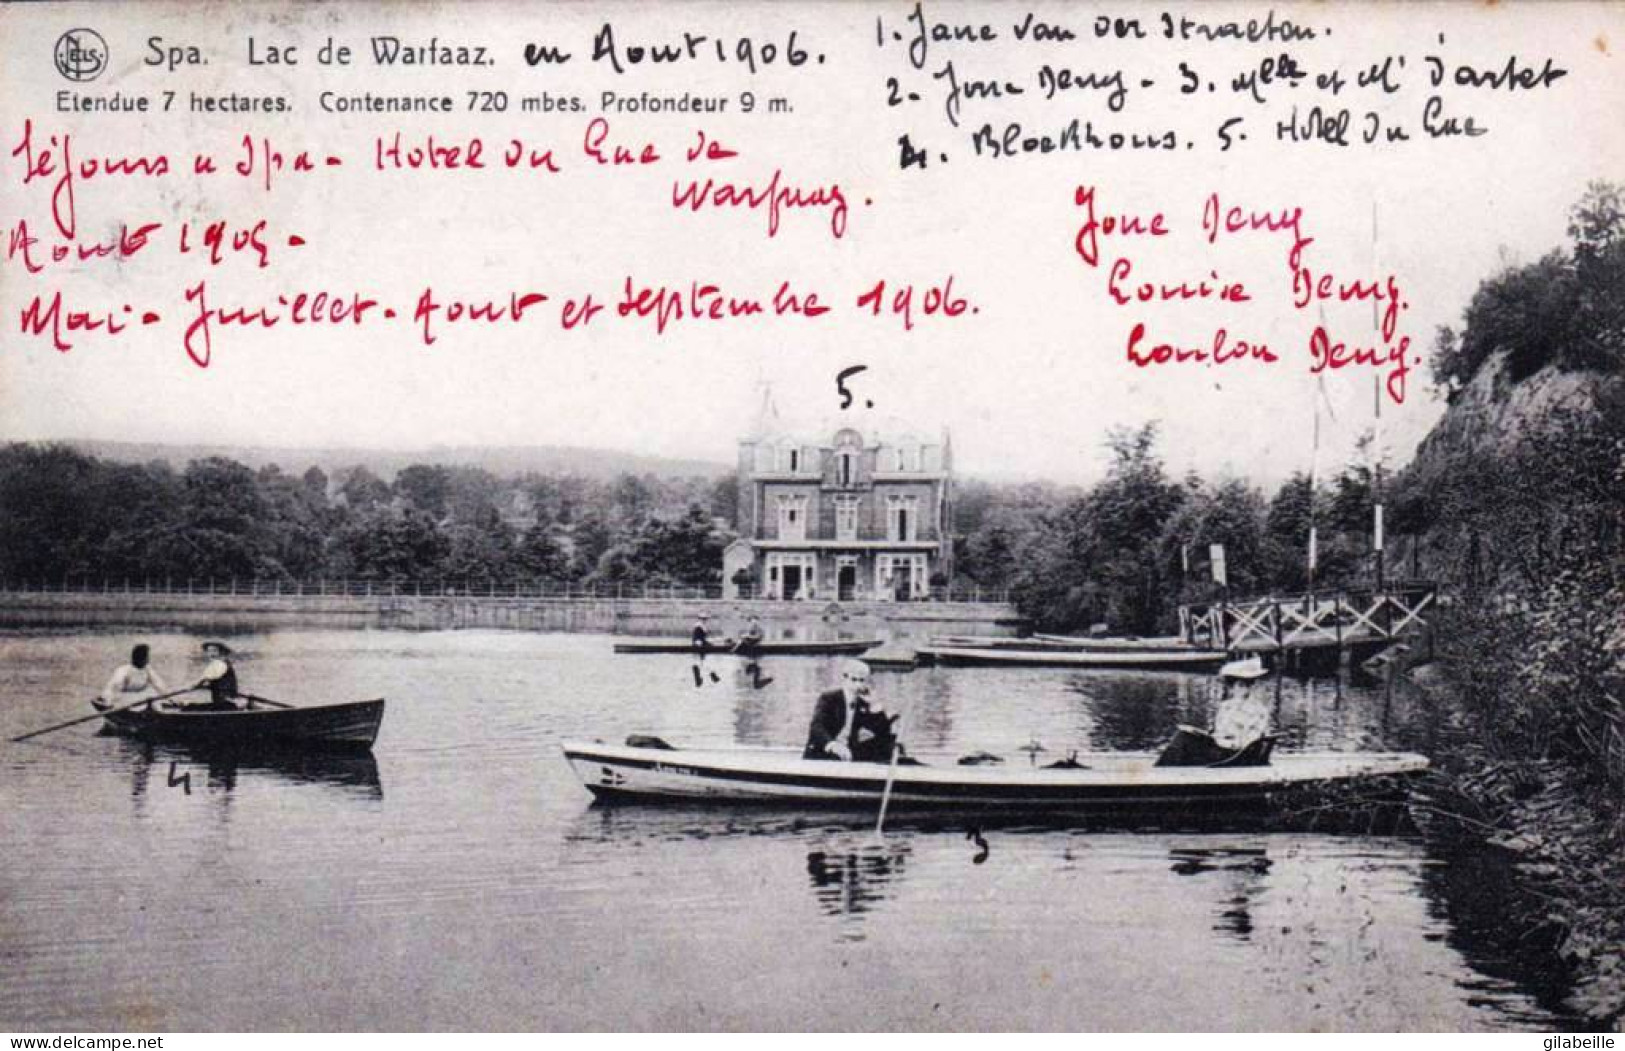 NELS
Spa. Lac de Warfaaz. en Aout 1906.
Etendue 7 hectares. Contenance 720 mbes. Profondeur 9 m.
1. Jane van der Straeten.
2. Jone Deny - 3. Mlle et Mr Dartet
4. Blockhous. 5. Hotel du Lac
Séjours a Spa - Hotel du Lac de
Warfaaz.
Aout 1905 -
Mai - Juillet - Aout et Septembre 1906.
Jone Deny
Louise Deny.
Loulou Deny.
5.
1. 2
4
3
delcampe.net
gilabeille